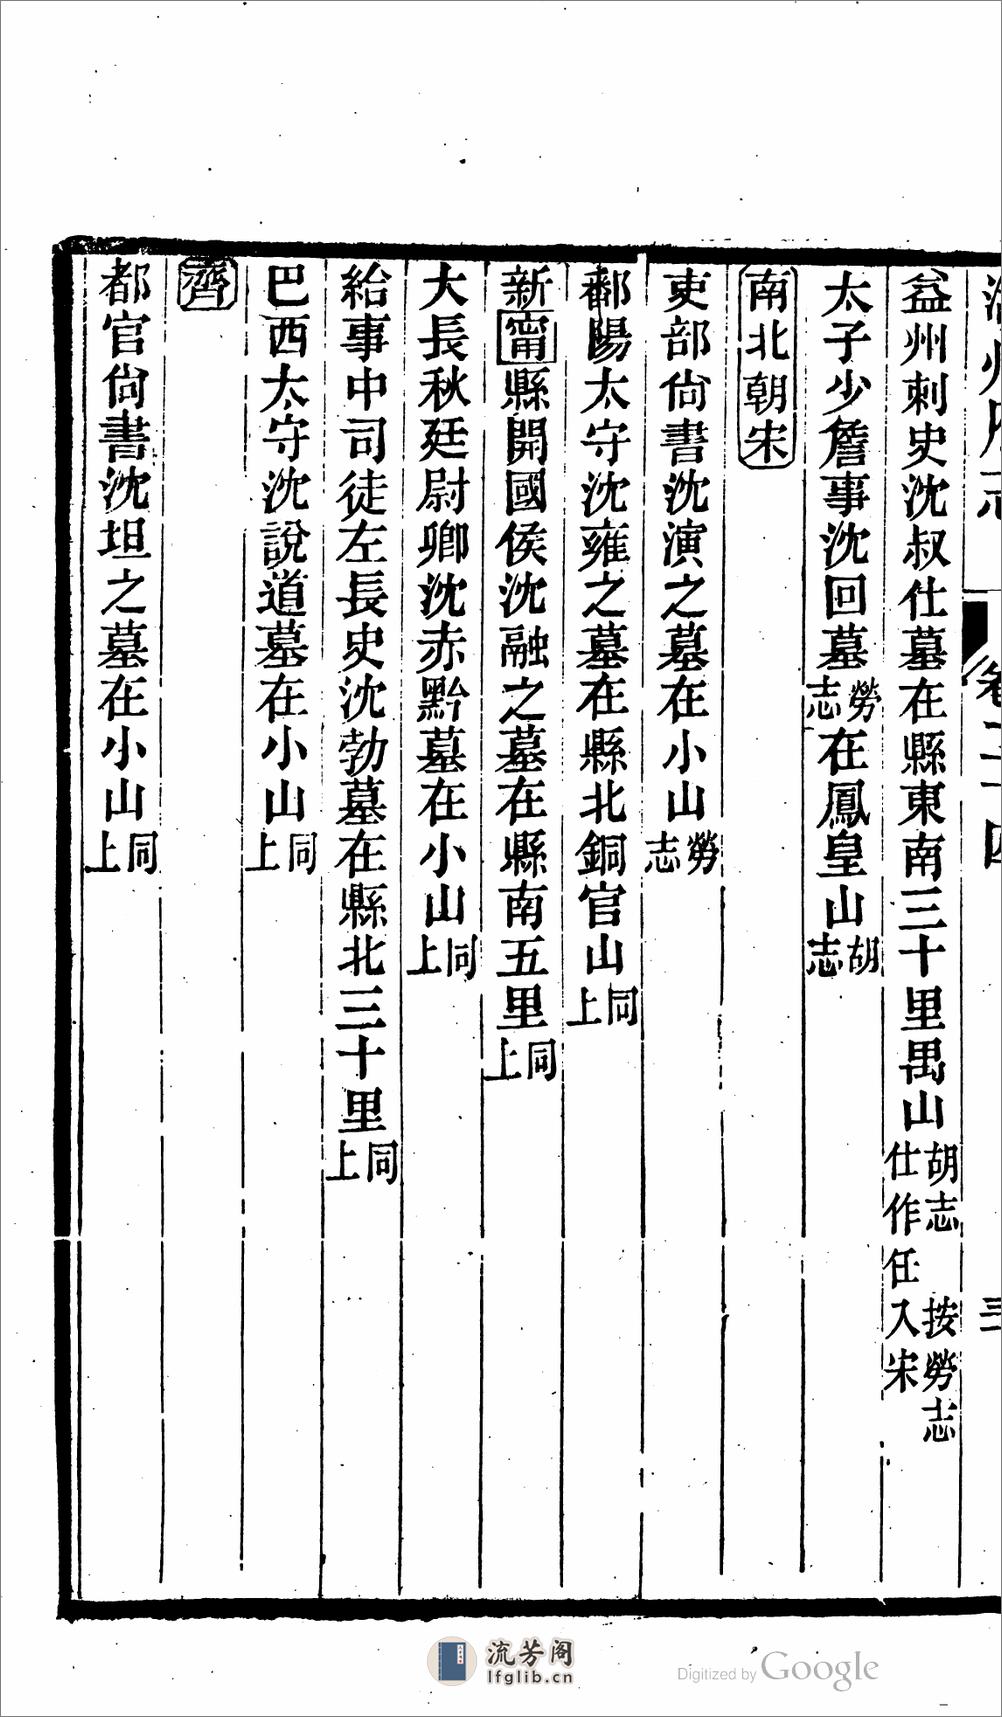 益州刺史沈叔仕墓在縣東南三十里禺山胡志　按勞志仕作任入宋
太子少詹事沈回墓勞志在鳳皇山胡志
南北朝宋
吏部尙書沈演之墓在小山勞志
鄱陽太守沈雍之墓在縣北銅官山同上
新甯縣開國侯沈融之墓在縣南五里同上
大長秋廷尉卿沈赤黔墓在小山同上
給事中司徒左長史沈勃墓在縣北三十里同上
巴西太守沈說道墓在小山同上
齊
都官尙書沈坦之墓在小山同上
流芳阁
lfglib.cn
Digitized by Google